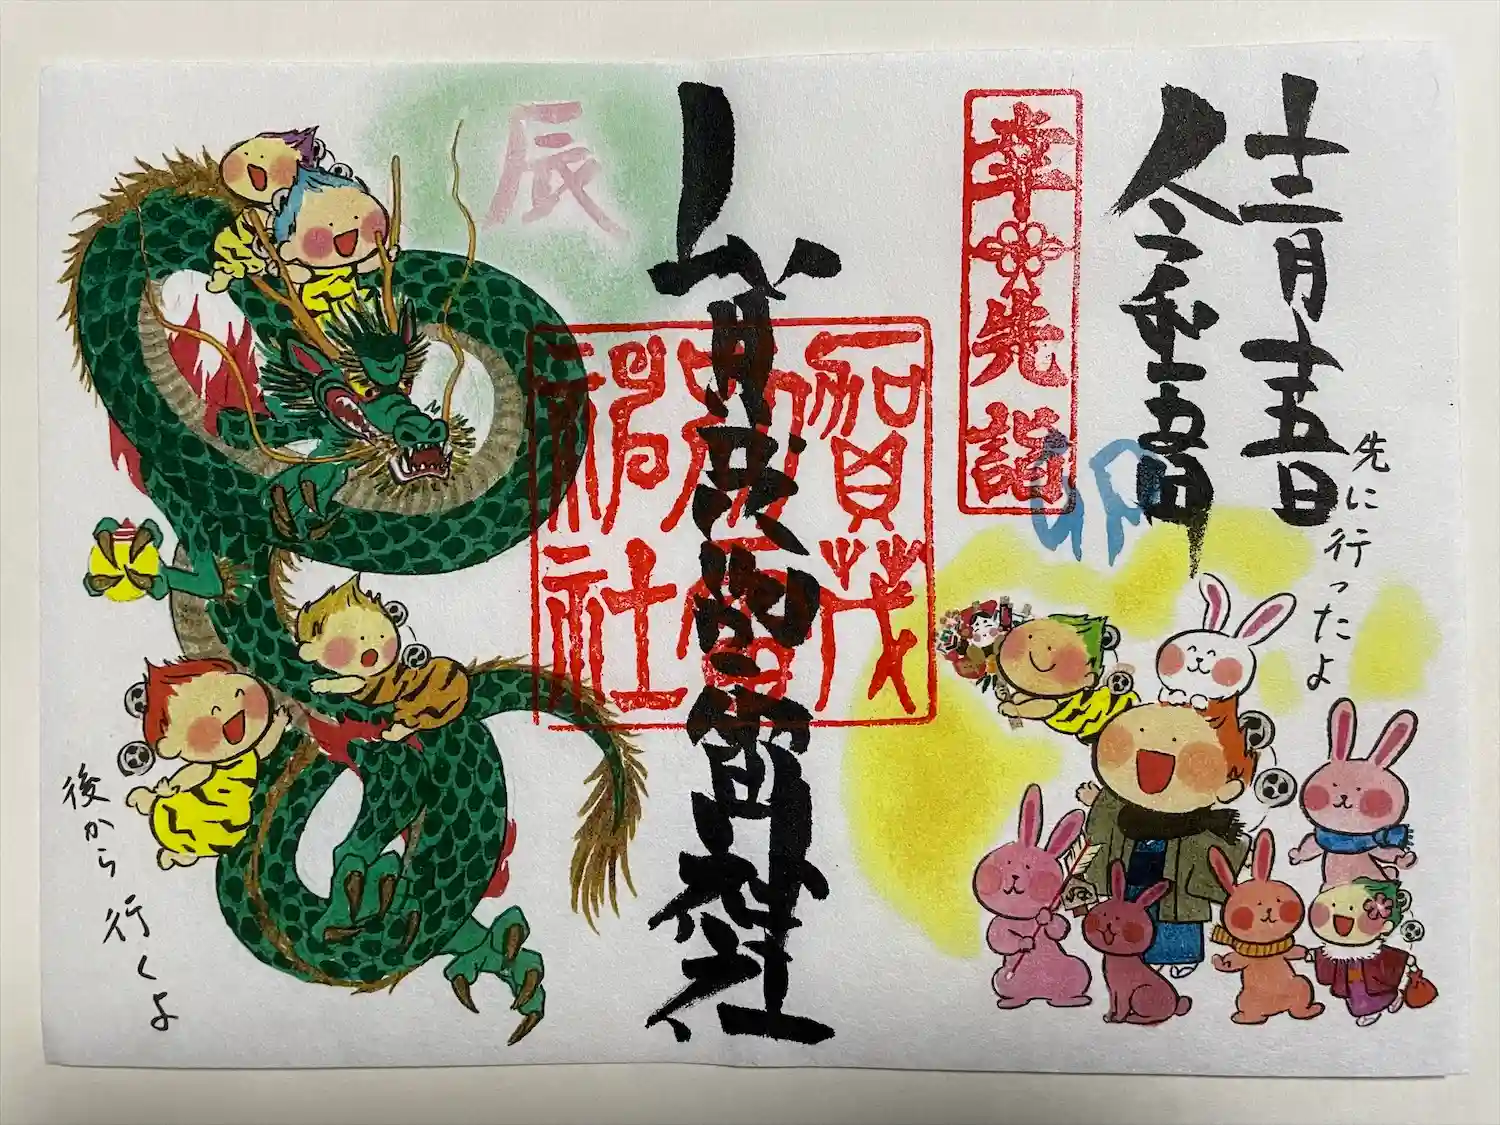 十二月十五日
令和五年
先に行ったよ
卯
幸先詣
賀茂別雷神社
賀茂
別雷
神社
辰
後から行くよ